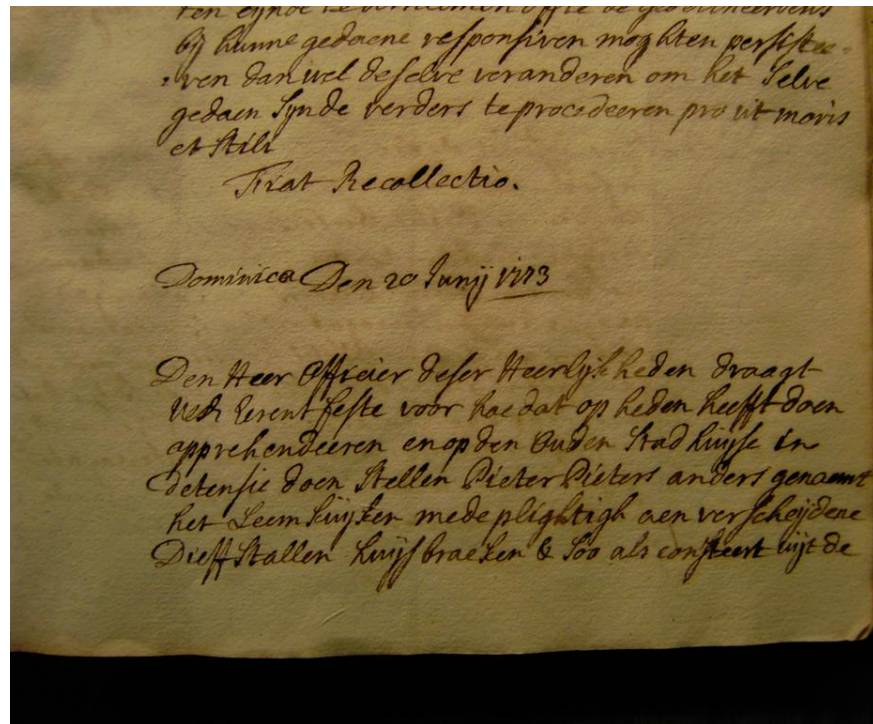 ten eynde te vernemen offte de gedetineerdens
bij hunne gedaene responsiven moghten persistee=
=ren dan wel deselve veranderen om het selve
gedaen synde verders te procedeeren pro ut moris
et stili
Fiat Recollectio.
Dominica Den 20 Junij 1773
Den Heer Officier deser Heerlijkheden draagt
Erentfeste voor hoe dat op heden heefft doen
apprehendeeren en op den Ouden Stadhuijse in
detensie doen stellen Pieter Pieters anders genaemt
het Leemkuijken mede plightigh aen verscheijdene
Dieffstallen huijsbraeken & soo als consteert uijt de